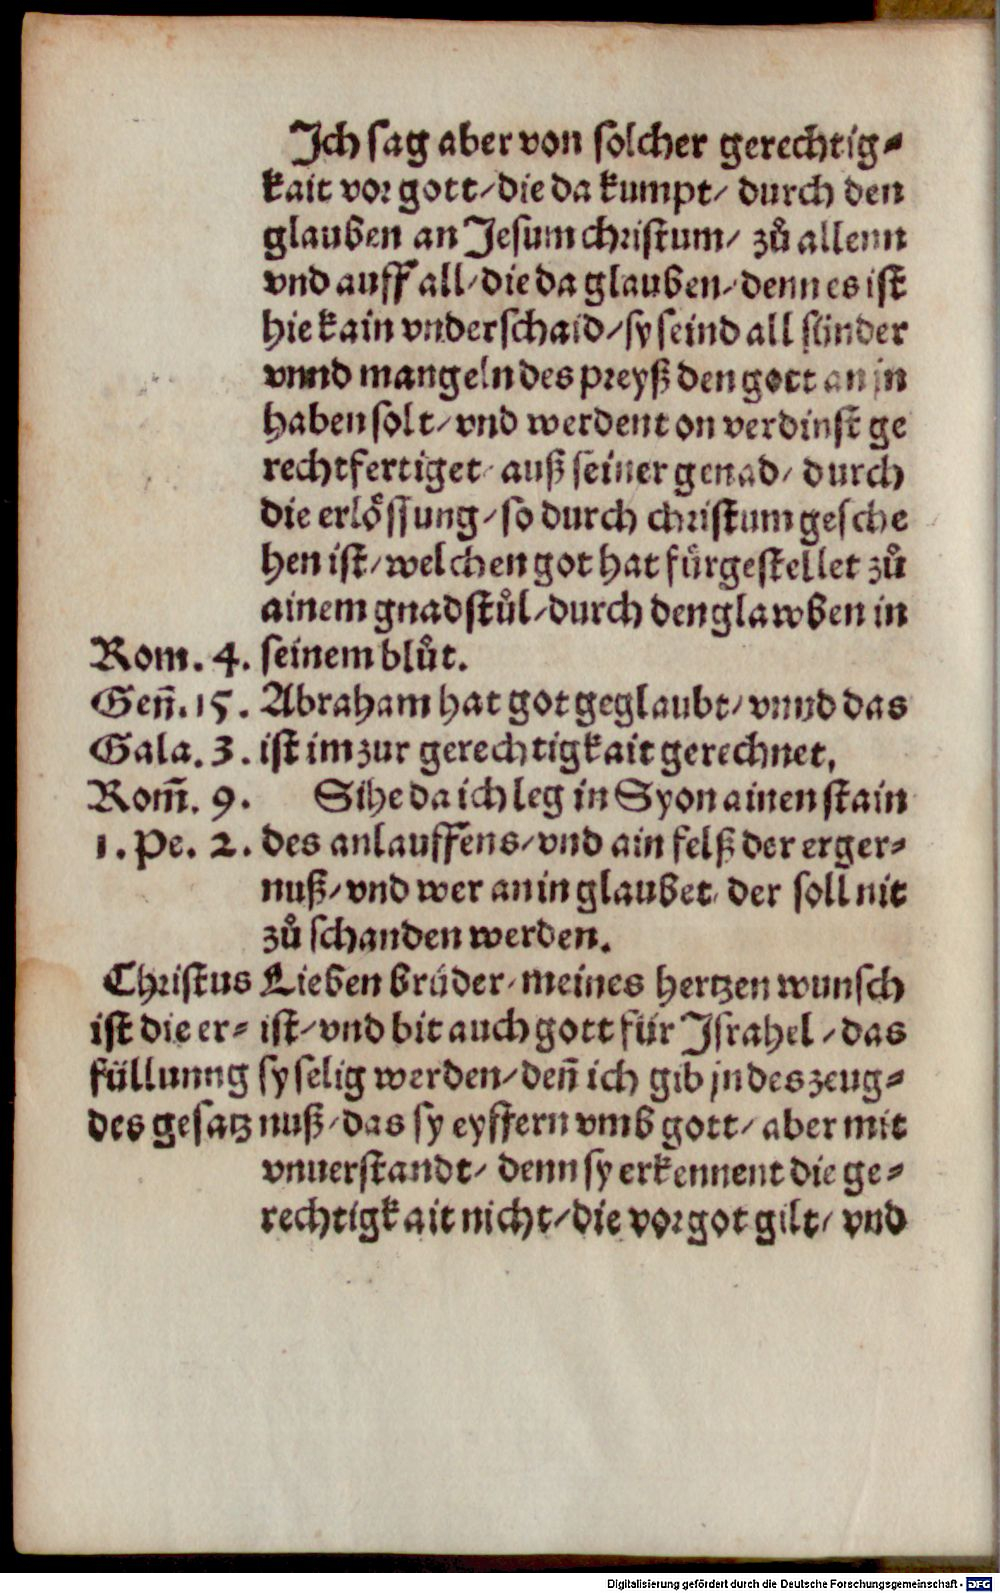 Ich sag aber von solcher gerechtig⸗
kait vor gott/ die da kumpt/ durch den
glauben an Jesum christum/ zů allenn
vnd auff all/ die da glauben/ denn es ist
hie kain vnderschaid/ sy seind all sünder
vnnd mangeln des preyß den gott an jn
haben solt/ vnd werdent on verdinst ge
rechtfertiget/ auß seiner genad/ durch
die erlössung/ so durch christum gesche
hen ist/ welchen got hat fürgestellet zů
ainem gnadstůl/ durch den glawben in
Rom. 4. seinem blůt.
Geñ. 15. Abraham hat got geglaubt/ vnnd das
Gala. 3. ist im zur gerechtigkait gerechnet.
Rom̄. 9. Sihe da ich leg in Syon ainen stain
1. Pe. 2. des anlauffens/ vnd ain felß der erger⸗
nuß/ vnd wer an in glaubet/ der soll nit
zů schanden werden.
Christus Lieben brüder/ meines hertzen wunsch
ist die er⸗ ist/ vnd bit auch gott für Israhel/ das
füllunng sy selig werden/ deñ ich gib jn des zeug⸗
des gesatz nuß/ das sy eyffern vmb gott/ aber mit
vnuerstandt/ denn sy erkennent die ge⸗
rechtigkait nicht/ die vor got gilt/ vnd
Digitalisierung gefördert durch die Deutsche Forschungsgemeinschaft - DFG